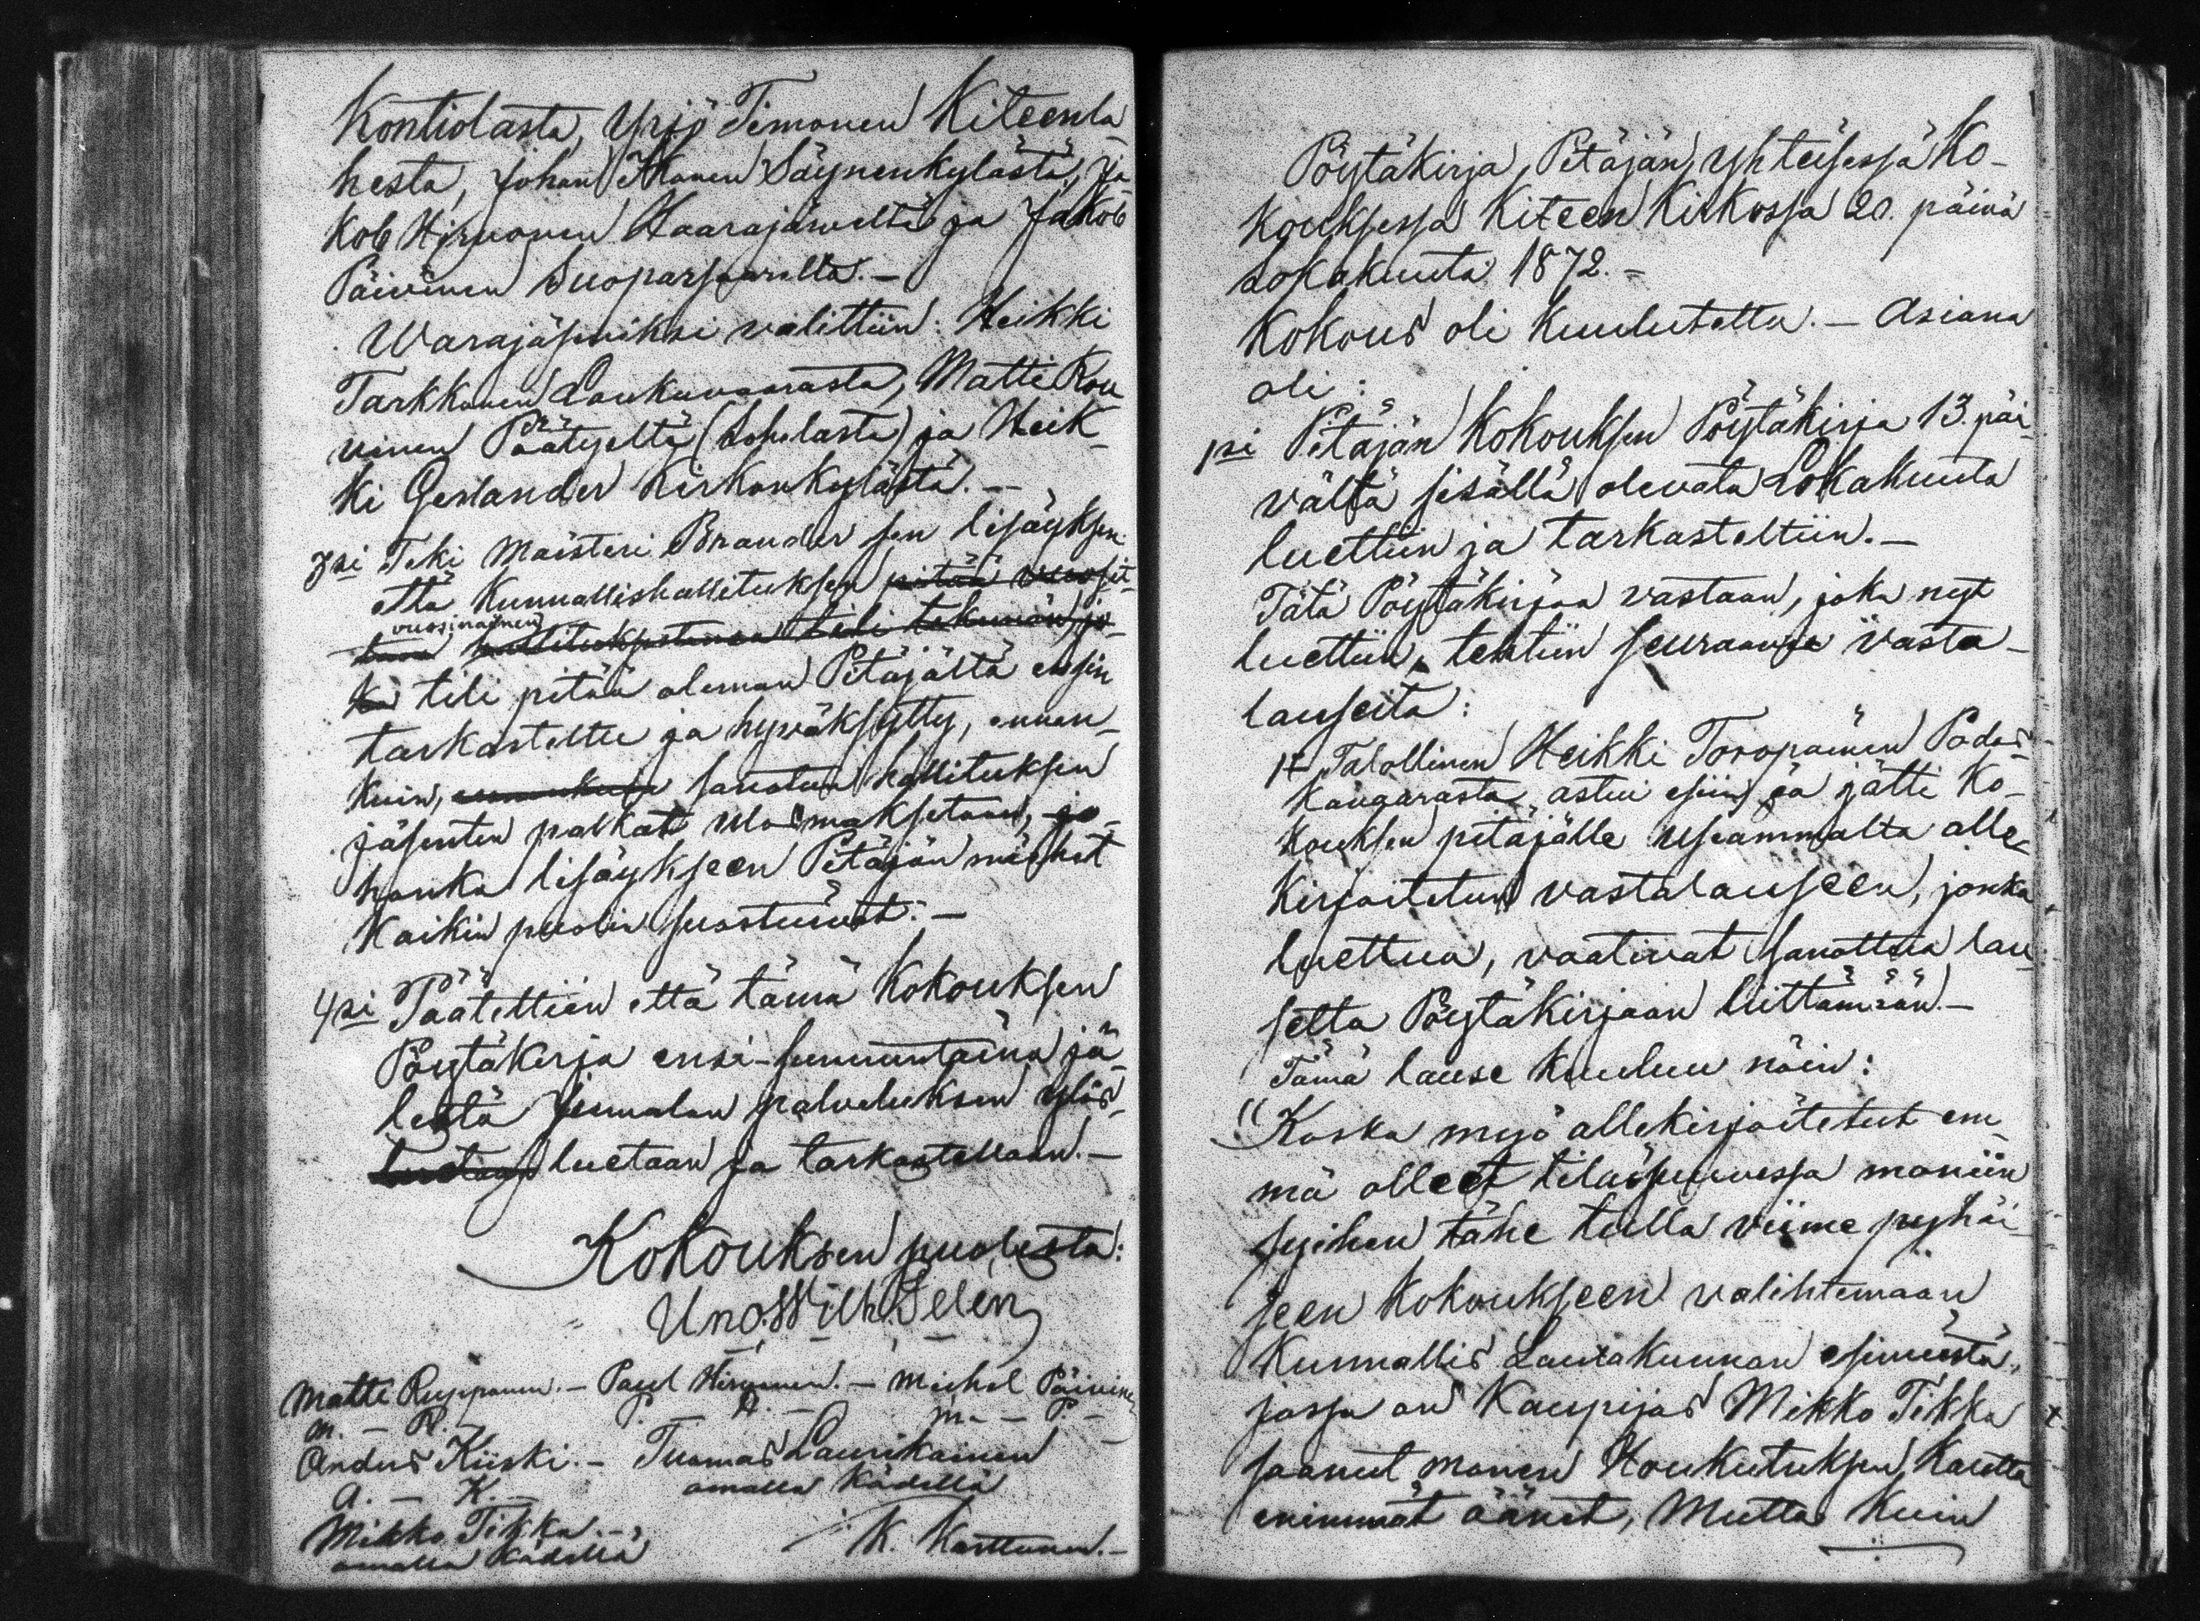 Kontiolasta, Yrjö Timonen Kiteenla
hesta, Johan Ikonen Säynenkylästä, Ja
kob Hirvonen Haarajärveltä ja Jakob
Päivinen Suoparsaarelta.—
Warajäseniksi valittiin: Heikki
Tarkkonen Loukuvaarasta, Matti Rou
vinen Päätyeltä (Loholasta) ja Heik-
ki Gerlander Kirkonkylästä.—
3si Teki Maisteri Brander sen lisäyksen
että Kunnallishallituksen pitää vuosit-
vuosinainen
tain hallituksestansa tili tekemän jo-
ka tili pitää oleman Pitäjältä ensin
tarkasteltu ja hyväksytty, ennen-
kuin, sanotun hallituksen
jäsenten palkat ulosmaksetaan, jo-
honka lisäykseen Pitäjän miehet
kaikin puolin suostuivat.—
4si Päätettiin että tämä Kokouksen
Pöytäkirja ensi-sunnuntaina jä-
lestä Jumalan palveluksen ylös-
luetaan luetaan ja tarkastellaan.—
Kokouksen puolesta:
Uno Wilh. Telén
Matti Ruppanen.— Paul Hirvonen.— Michel Päivinen
M.— R.— P. H.— M.— P.—
Anders Kiiski.— Tuomas Laurikainen
A.— K.— omalla kädellä
Mikko Tikka.—
omalla kädellä K. Karttunen.—
Pöytäkirja, Pitäjän yhteisessä Ko-
kouksessa Kiteen Kirkossa 20. päivä
Lokakuuta 1872.—
Kokous oli kuulutettu.— Asiana
oli:
1si Pitäjän Kokouksen Pöytäkirja 13. päi-
vältä sisällä olevata Lokakuuta
luettiin ja tarkasteltiin.—
Tätä Pöytäkirjaa vastaan, joka nyt
luettiin, tehtiin seuraavia vasta-
lauseita:
Talollinen Heikki Toropainen Podos-
kangarasta astui esiin ja jätti Ko-
kouksen pitäjälle useammalta alle-
kirjoitetun vastalauseen, jonka
luettua, vaativat sanottua lau-
setta Pöytäkirjaan liittämään.—
Tämä lause kuuluu näin:
"Koska myö allekirjoitetut em-
mä olleet tilaisuuvessa moniin
syihen tähe tulla viime pyhäi-
seen Kokoukseen valihtemaan
Kunnallis Lautakunnan esimiestä,
jossa on Kaupijas Mikko Tikka
saanut monen Houkutuksen kautta
enimmät äänet, Mutta kuin